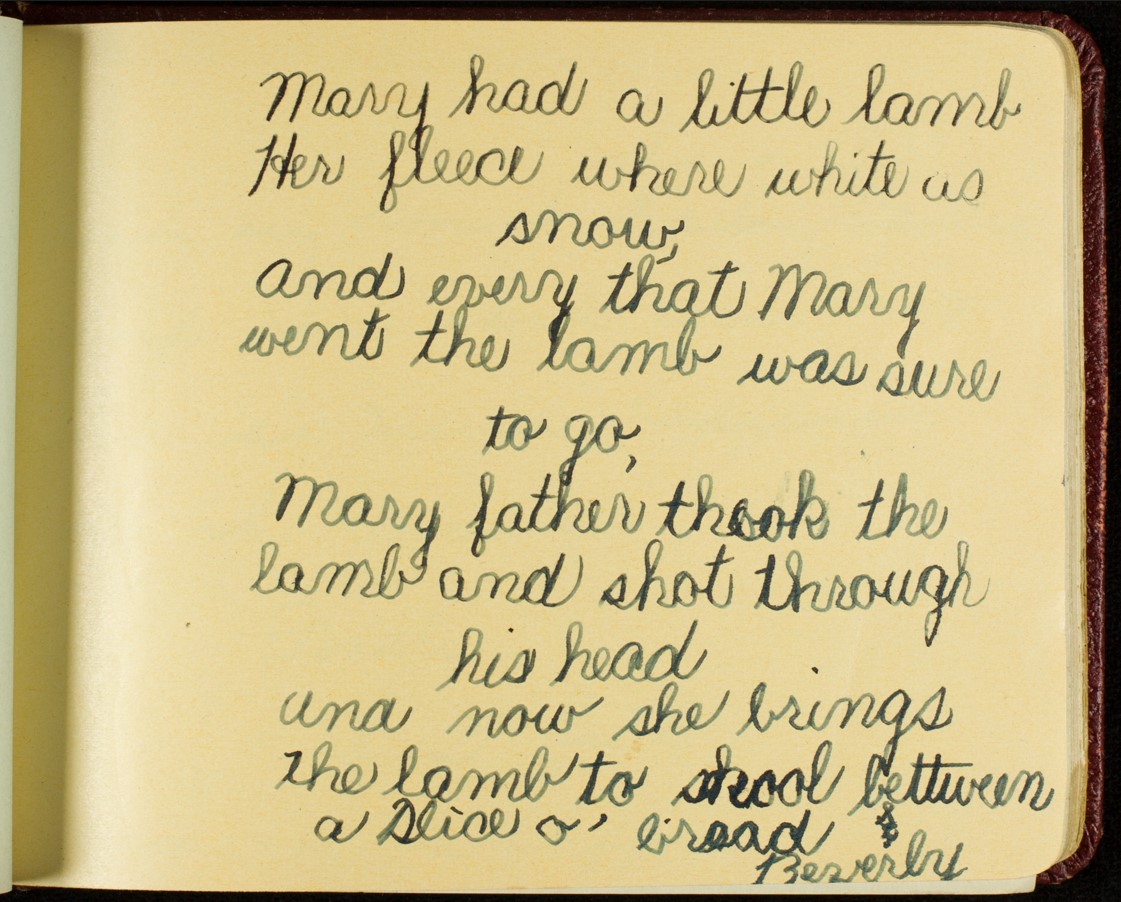 Mary had a little lamb
Her fleece where white as
snow,
and every that Mary
went the lamb was sure
to go,
Mary father thook the
lamb and shot through
his head
and now she brings
the lamb to skool bettween
a Slice o' bread
Beverly